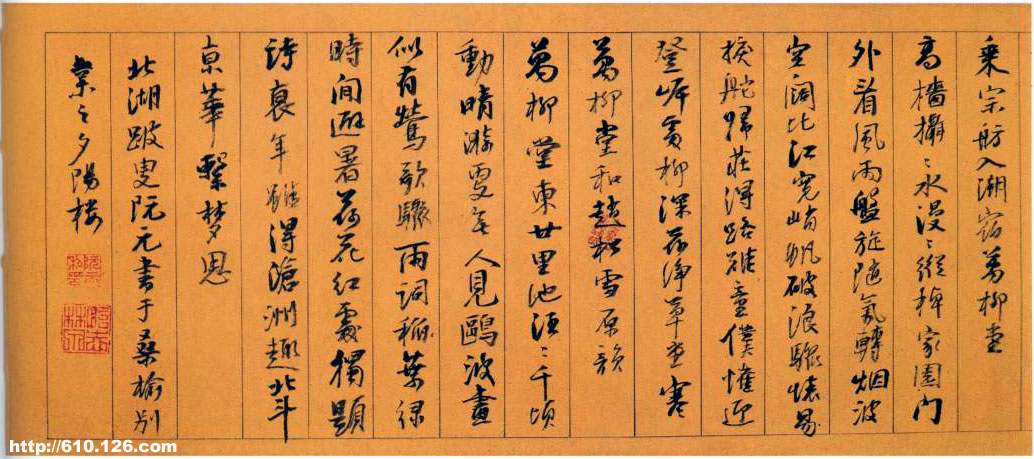 乘宗舫入湖宿萬柳堂
高檣攝〻水漫〻縱棹家園門
外看風雨盤旋隨氣轉烟波
空闊比江寬峭帆破浪驟懷易
捩舵歸莊得路難童僕懽迎
登岸處柳深荷淨草堂寒
萬柳堂和趙松雪原韻
萬柳堂東廿里池千頃
動晴漪更無人見鷗波畫
似有鶯歌驟雨詞葉綠
時間避暑荷花紅處獨題
詩衰年雖得滄洲趣北斗
京華繫梦思
北湖跛叟阮元書于桑榆別
業之夕陽樓
http://610.126.com